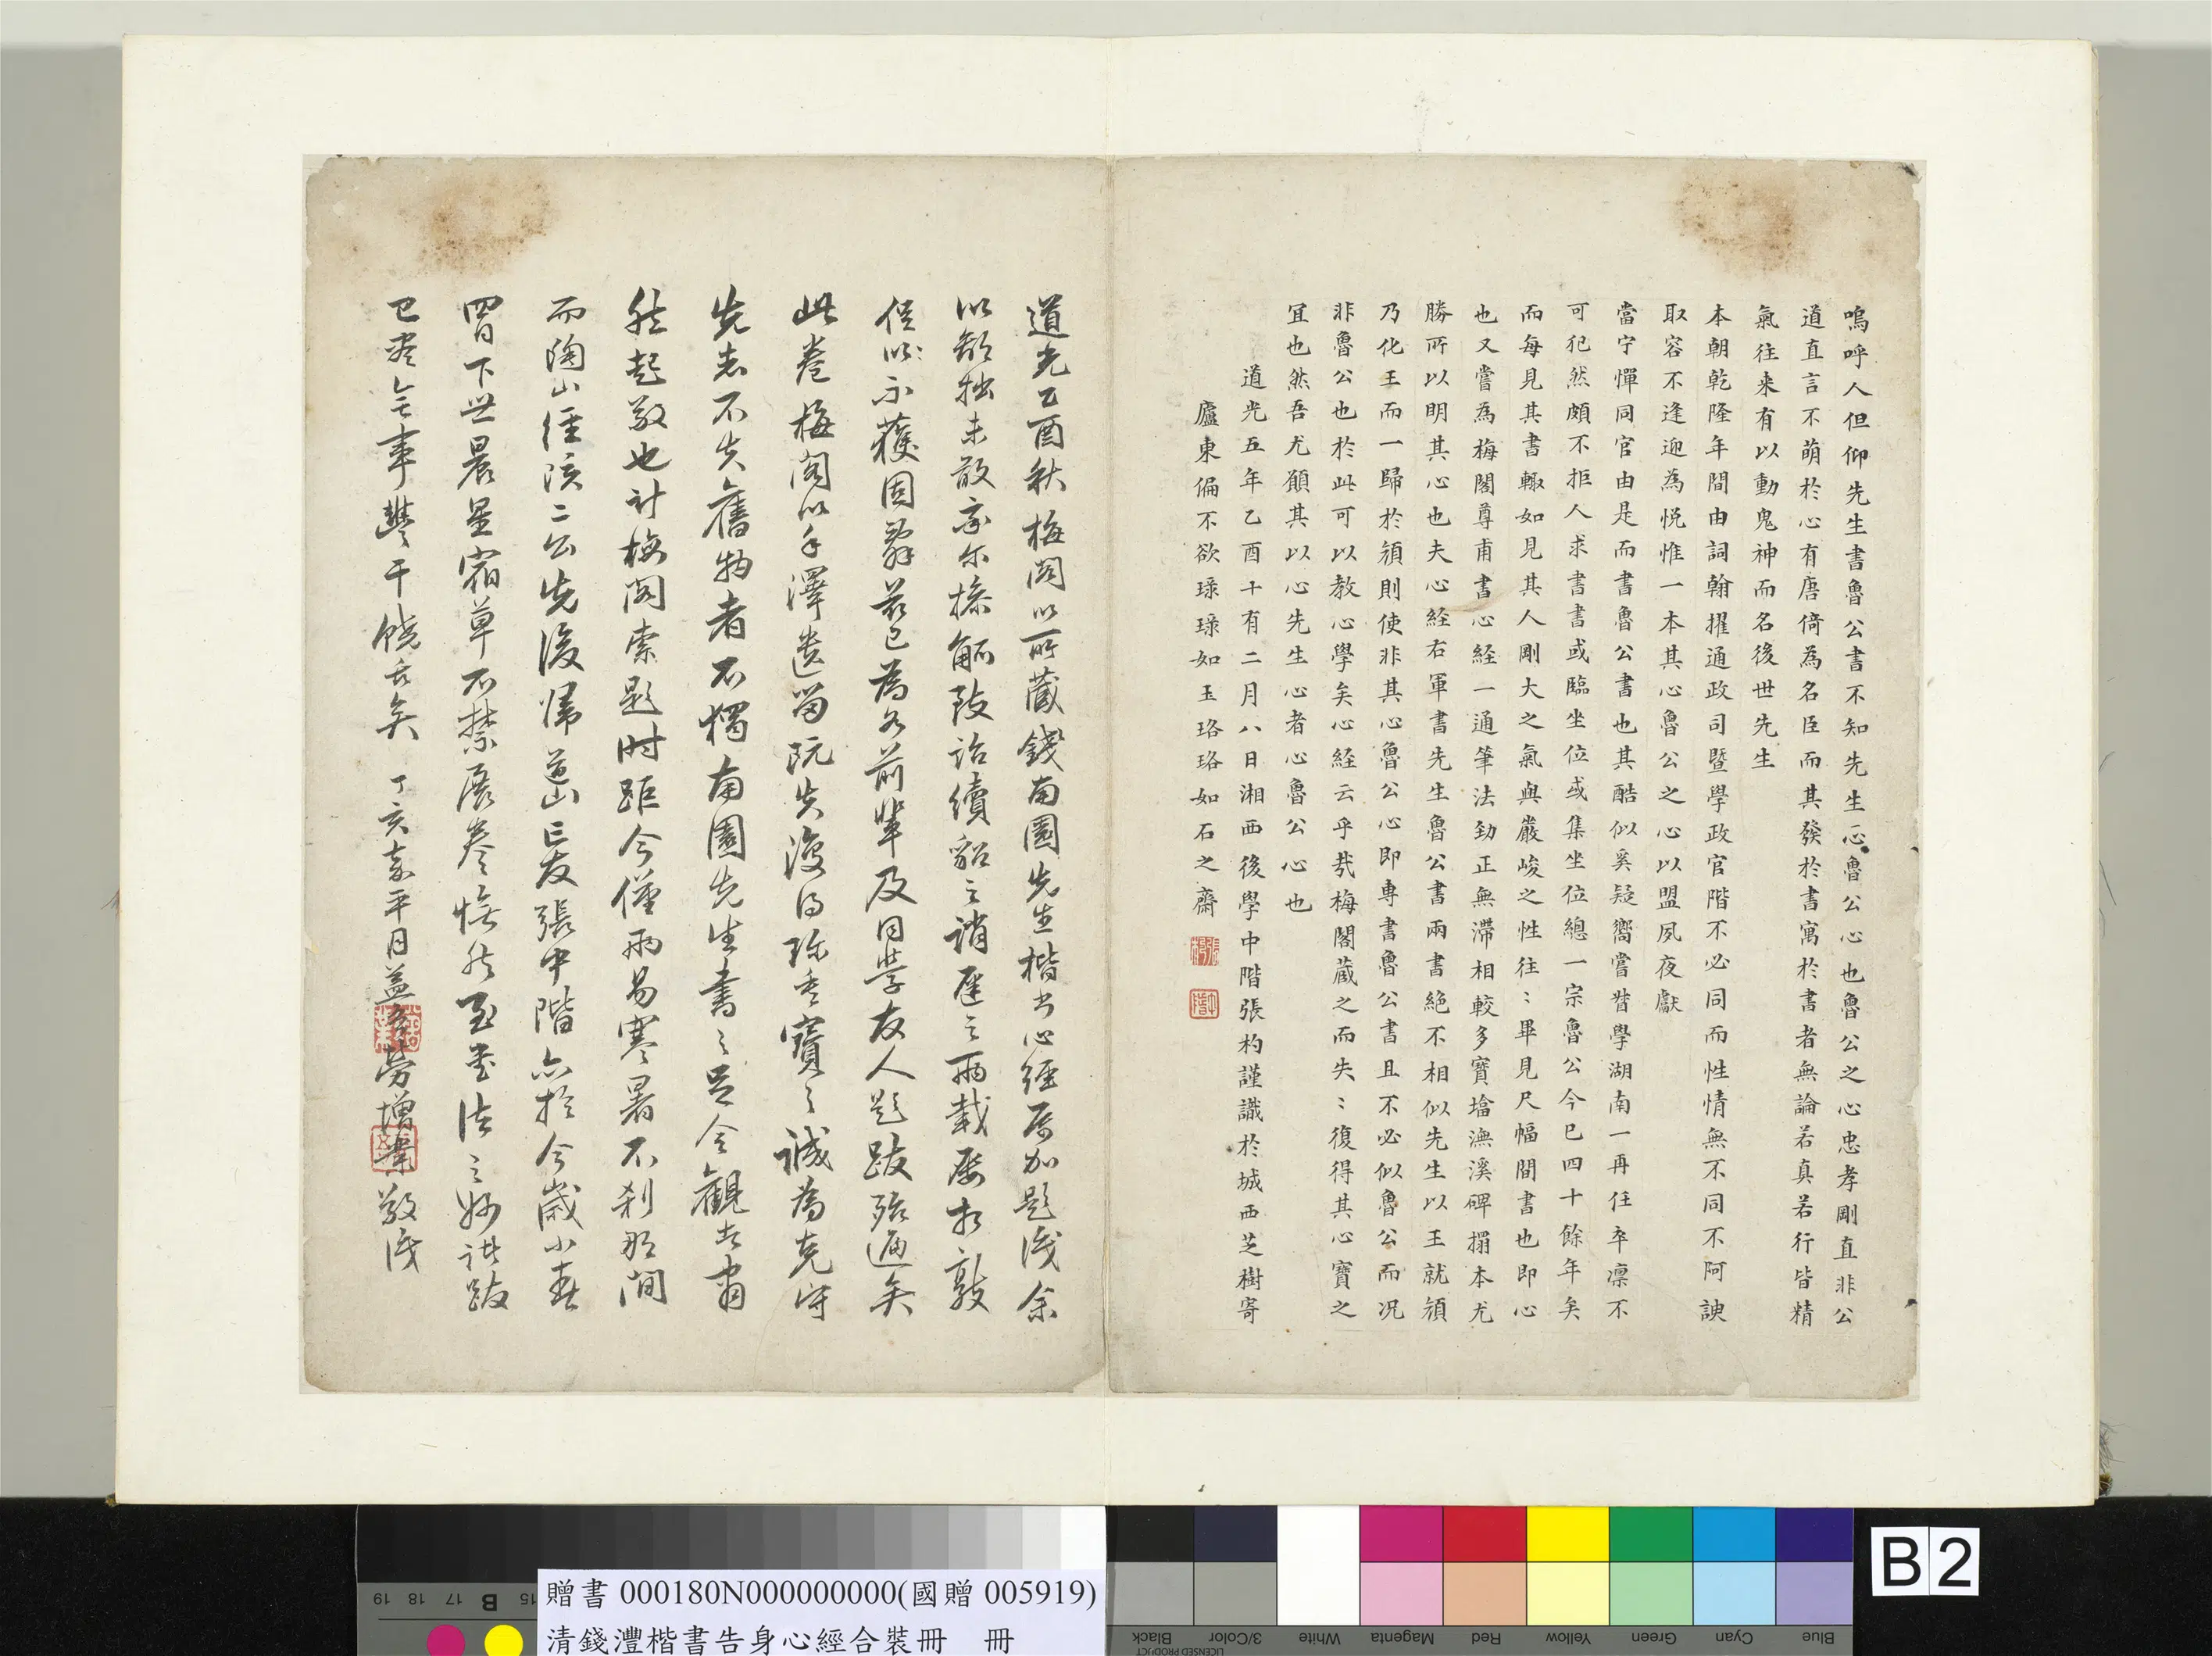 嗚呼人但仰先生書魯公書不知先生心魯公心也魯公之心忠孝剛直非公
道直言不萌於心有唐倚為名臣而其發於書寓於書者無論若真若行皆精
氣往来有以動鬼神而名後世先生
本朝乾隆年間由詞翰擢通政司暨學政官階不必同而性情無不同不阿諛
取容不逢迎為悦惟一本其心魯公之心以盟夙夜獻
當宁憚同官由是而書魯公書也其酷似奚疑嚮嘗督學湖南一再任卒凛不
可犯然頗不拒人求書書或臨坐位或集坐位總一宗魯公今已四十餘年矣
而每見其書輙如見其人剛大之氣與嚴峻之性往:畢見尺幅間書也即心
也又嘗為梅閣尊甫書心経一通筆法勁正無滯相較多寶墖浯溪碑搨本尤
勝所以明其心也夫心経右軍書先生魯公書兩書絶不相似先生以王就顔
乃化王而一歸於顔則使非其心魯公心即專書魯公書且不必似魯公而况
非魯公也於此可以教心學矣心経云乎㦲梅閣蔵之而失:復得其心寶之
宜也然吾尤願其以心先生心者心魯公心也
道光五年乙酉十有二月八日湘西後學中階張杓謹識於城西芝樹寄
廬東偏不欲琭琭如玉珞珞如石之齋
道光乙酉秋梅閣以所藏錢南園先生楷書心經属加題識余
以鄙拙未敢率尔操觚致詒續貂之誚遲之兩載屡承敦
促以不獲固辭茲已為各前輩及同學友人題跋殆遍矣
此卷梅閣以手澤遺留既失復得珍重寶之誠為克守
先志不失舊物者不獨南園先生書之足令觀者肅
然起敬也計梅閣索題時距今僅兩易寒暑不刹那間
而陶山經陔二公先後帰道山亡友張中階亦於今歲小春
胃下世晨星宿草不禁展卷悵然至書法之妙諸跋
已盡無事豐干饒舌矣 丁亥嘉平月益吾勞增業敬識
贈書 000180N000000000(國贈 005919)
清錢灃楷書告身心經合裝冊 冊
B 2
19 18 17 B 15
Black 3/Color White Magenta Red Yellow Green Cyan Blue
LICENSED PRODUCT